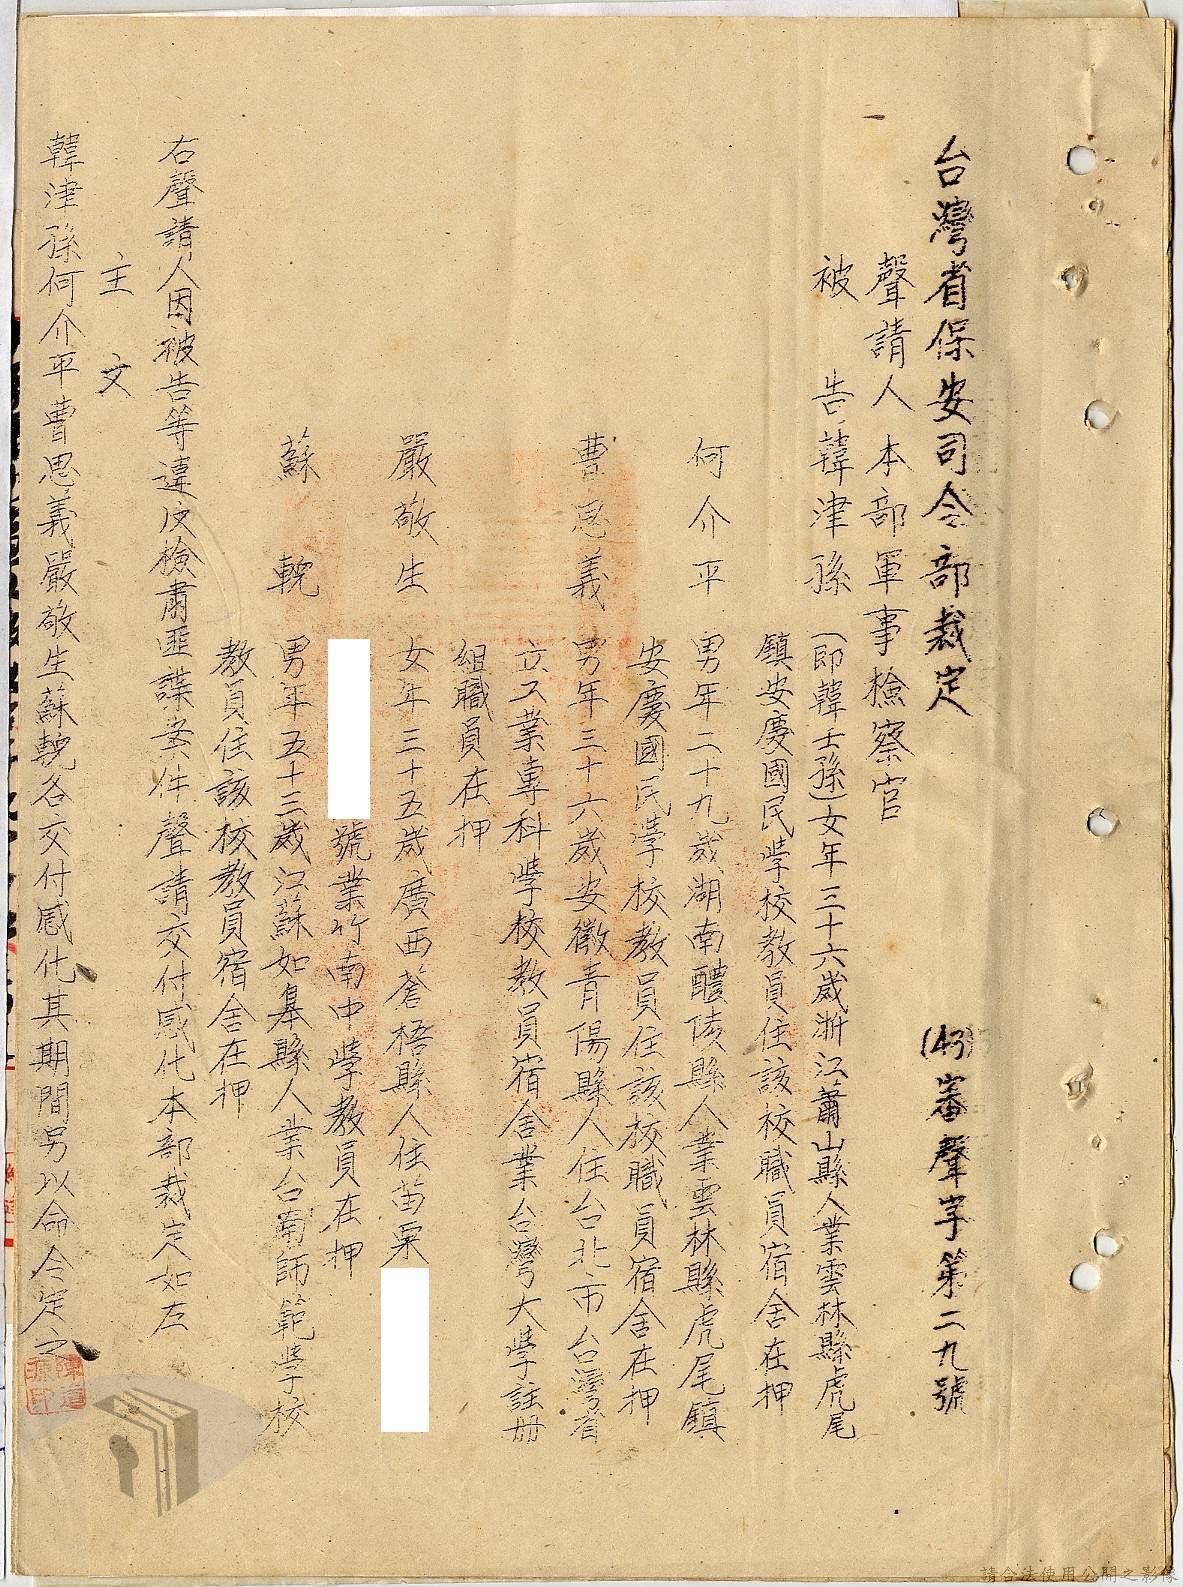 台灣省保安司令部裁定
(43)審聲字第二九號
聲請人本部軍事檢察官
被 告韓津孫(即韓壬孫)女年三十六歲浙江蕭山縣人業雲林縣虎尾
鎮安慶國民學校教員住該校職員宿舍在押
何介平 男年二十九歲湖南醴陵縣人業雲林縣虎尾鎮
安慶國民學校教員住該校職員宿舍在押
曹思義 男年三十六歲安徽青陽縣人住台北市台灣省
立工業專科學校教員宿舍業台灣大學註冊
組職員在押
嚴敬生 女年三十五歲廣西蒼梧縣人住苗栗
號業竹南中學教員在押
蘇 輗 男年五十三歲江蘇如皋縣人業台南師範學校
教員住該校教員宿舍在押
右聲請人因被告等違反檢肅匪諜案件聲請交付感化本部裁定如左
主 文
韓津孫何介平曹思義嚴敬生蘇輗各交付感化其期間另以命令定之
陳道源印
請合法使用公開之影像